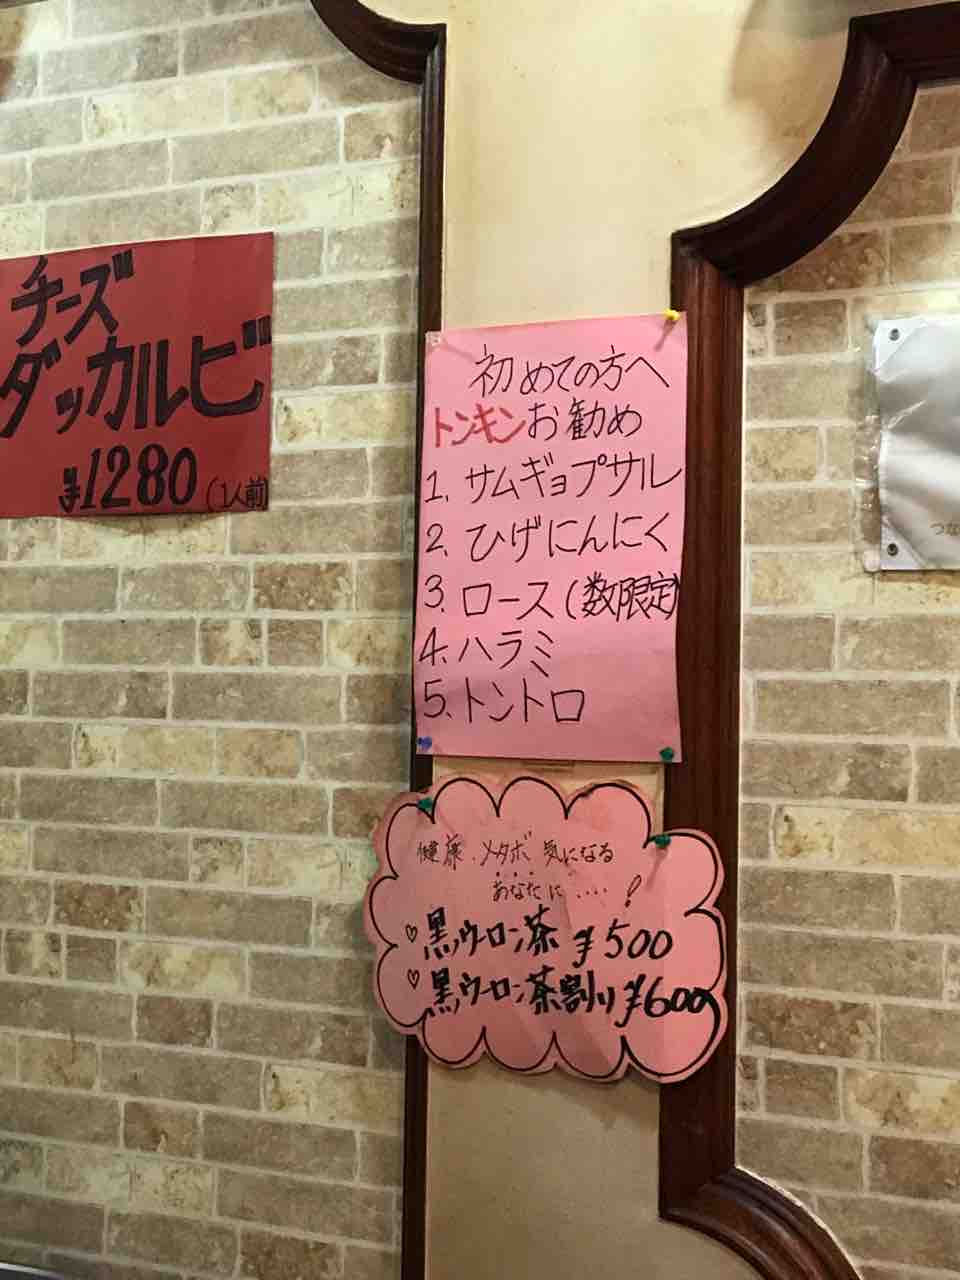 チーズ
ダッカルビ
¥1280(1人前)
初めての方へ
トンキンお勧め
1. サムギョプサル
2. ひげにんにく
3. ロース(数限定)
4. ハラミ
5. トントロ
健康、メタボ 気になる
あなたに....!
♡黒ウーロン茶 ¥500
♡黒ウーロン茶割り ¥600
つな